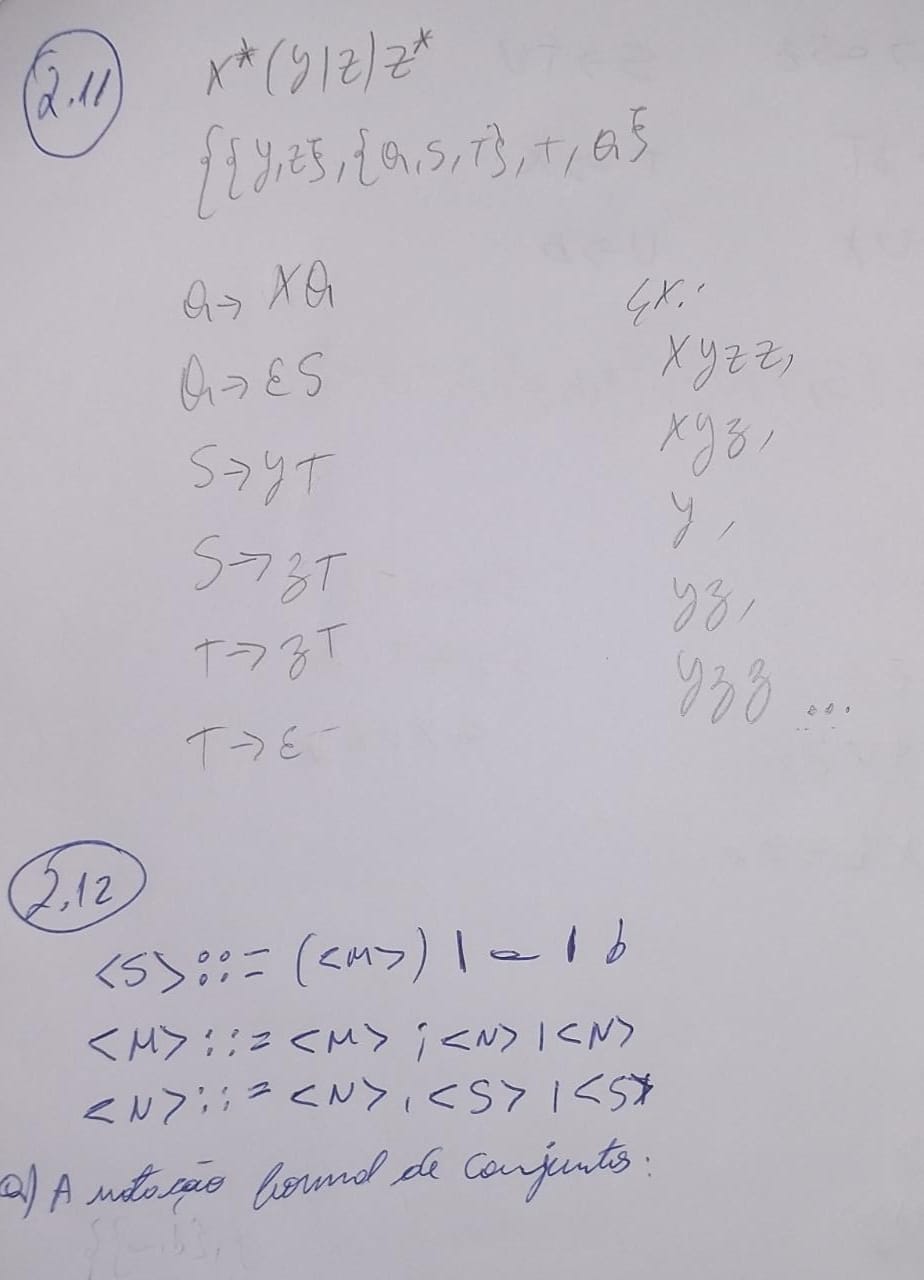 2.11
x*(y|z)z*
{{y,z},{Q,S,T},+,Q}
Q→ XQ
Q→ εS
S→yT
S→zT
T→zT
T→ε
Ex.:
xyzz,
xyz,
y,
yz,
yzz ...
2.12
<S>::= (<M>) | a | b
<M>::= <M> ; <N> | <N>
<N>::= <N> , <S> | <S>
a) A notação formal de conjuntos: